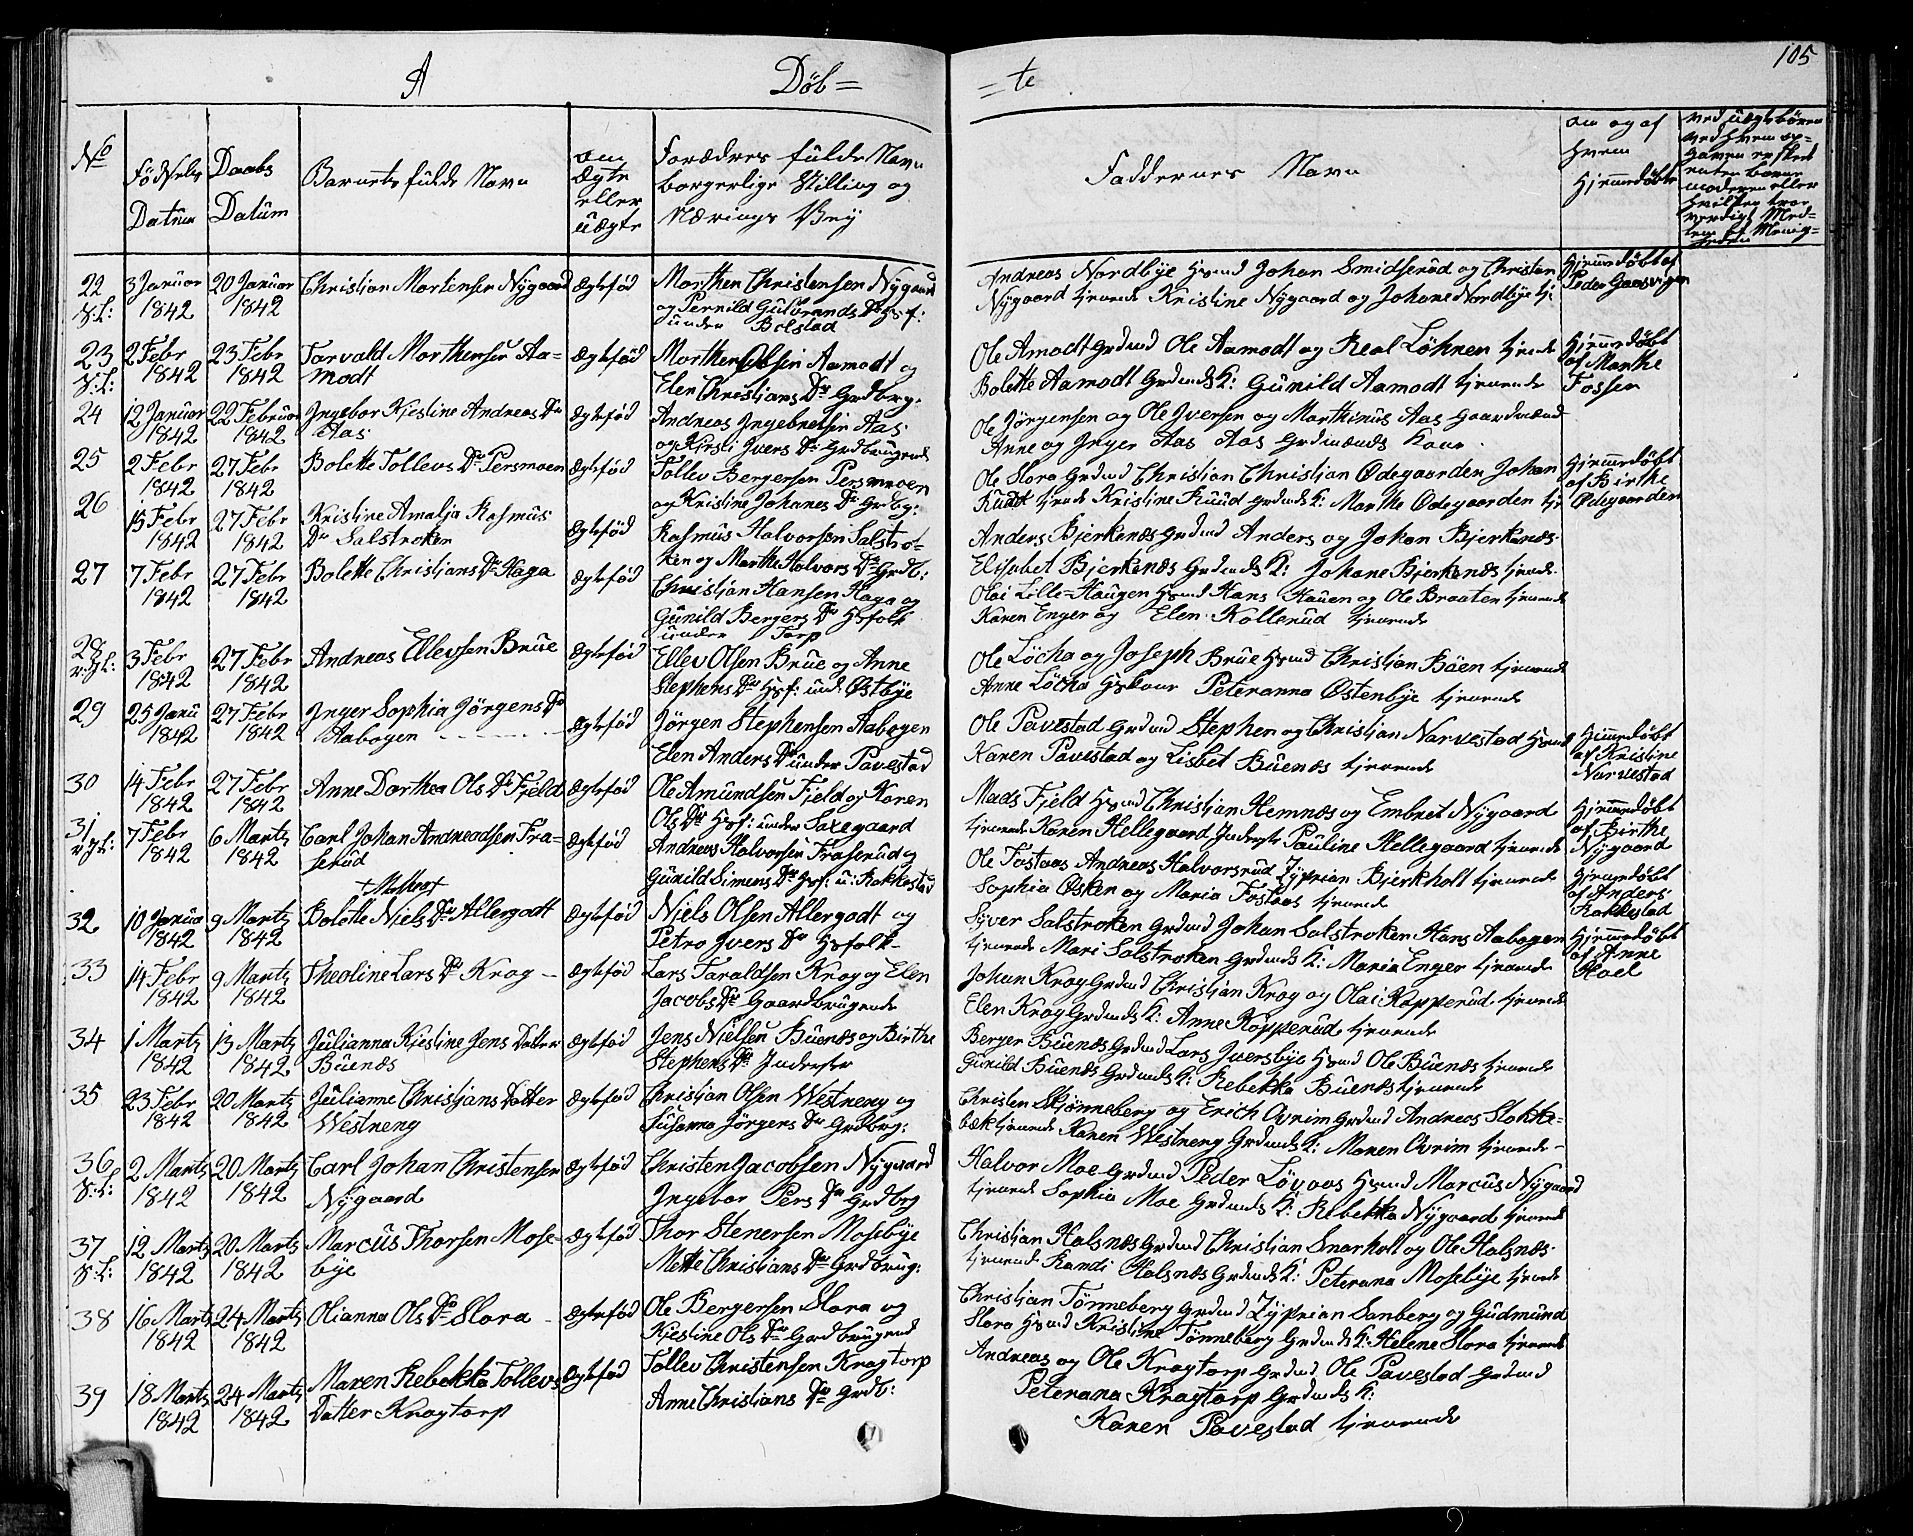 105
A Döb= =te
No
Fødsels Datum
Daabs Datum
Barnets fulde Navn
om ægte eller uægte
Forældres fulde Navn borgerlige Stilling og Nærings Vej
Faddernes Navn
om og af hvem Hjemmedøbt
22 3 Januar 1842 20 Januar 1842 Christian Mortensen Nygaard Ægtefød
Morthen Christensen Nygaard
og Pernild Gulbrands Dr Hsf:
under Bolstad
Andreas Nordbye Hsmd Johan Smidserud og Christen
Nygaard tjenende Kristine Nygaard og Johane Nordbye tj:
Hjemmedøbt af
Peder Gaasvigen
23 2 Febr 1842 23 Febr 1842 Torvald Morthensen Aamodt Ægtefød
Morthen Olsen Aamodt og
Elen Christians Dr Grdbrg:
Ole Amodt Grdmd Ole Aamodt og Real Löhren tjenende
Bolette Aamodt Grdmds K: Gunild Aamodt tjenende
Hjemmedøbt
af Marthe
Fosser
24 12 Januar 1842 22 Februar 1842 Ingebor Kjestine Andreas Dr Aas Ægtefød
Andreas Ingebretsen Aas
og Kirsti Ivers Dr Grdbrugende
Ole Jörgensen og Ole Iversen og Marthinus Aas Gaardmænd
Anne og Inger Aas Aas Grdmænds Koner
25 2 Febr 1842 27 Febr 1842 Bolette Tollevs Dr Persmoen Ægtefød
Tollev Bergersen Persmoen
og Kristine Johanes Dr Grdbg:
Ole Slora Grdmd Christian Christian Ødegaarden Johan
Ruud tjende Kristine Ruud Grdmds K: Marthe Ødegaarden tj
Hjemmedøbt
af Birthe
Ødegaarden
26 15 Febr 1842 27 Febr 1842 Kristine Amalja Rasmus Dr Salstroken Ægtefød
Rasmus Halvorsen Salstroken
og Marthe Halvors Dr Grdb:
Anders Bjerkenæs Grdmd Anders og Johan Bjerkenæs
Elisabet Bjerkenæs Grdmds K: Johane Bjerkenæs tjende
27 7 Febr 1842 27 Febr 1842 Bolette Christians Dr Haga Ægtefød
Christian Hansen Haga og
Gunild Bergers Dr Hsfolk
under Torp
Olai Lille-Haugen Hsmd Hans Hauen og Ole Braaten tjenende
Karen Enger og Elen Kollerud tjenende
28 3 Febr 1842 27 Febr 1842 Andreas Ellevsen Brue Ægtefød
Ellev Olsen Brue og Anne
Stephens Dr Hsf: und Østbye
Ole Löcha og Joseph Brue Hsmd Christian Büen tjenende
Anne Löcha Hskone Peteranna Østenbye tjenende
29 25 Janu 1842 27 Febr 1842 Inger Sophia Jörgens Dr Aabogen Ægtefød
Jörgen Stephensen Aabogen
Elen Anders Dr under Pavestad
Ole Pavestad Grdmd Stephen og Christian Narvestad Hsmd
Karen Pavestad og Lisbet Buenæs tjenende
Hjemmedøbt
af Kristine
Narvestad
30 14 Febr 1842 27 Febr 1842 Anne Dorthea Ols Dr Fjeld Ægtefød
Ole Amundsen Fjeld og Karen
Ols Dr Hsf: under Saxegaard
Mads Fjeld Hsmd Christian Hemnæs og Embret Nygaard
tjenende Karen Hellegaard Inderste Pauline Hellegaard tjenende
Hjemmedøbt
af Birthe
Nygaard
31 7 Febr 1842 6 Marts 1842 Carl Johan Andreadsen Fraserud Ægtefød
Andreas Halvorsen Fraserud og
Gunild Simens Dr Hsf: u: Rakkestad
Ole Fostaas Andreas Halvorsrud Zyprian Bjerkholt tjenende
Sophia Osken og Maria Fostaas tjenende
Hjemmedøbt
af Anders
Rakkestad
32 10 Janua 1842 9 Marts 1842 Bolette Niels Dr Allergodt Ægtefød
Niels Olsen Allergodt og
Petro Ivers Dr Hsfolk
Syver Salstroken Grdmd Johan Salstroken Hans Aabogen
tjenende Mari Salstroken Grdmds K: Maria Enger tjenende
Hjemmedøbt
af Anne
Hoel
33 14 Febr 1842 9 Marts 1842 Theoline Lars Dr Krog Ægtefød
Lars Taraldsen Krog og Elen
Jacobs Dr Gaardbrugende
Johan Krog Grdmd Christian Krog og Olai Kopperud tjenende
Elen Krog Grdmds K: Anne Kopperud tjenende
34 1 Marts 1842 13 Marts 1842 Julianna Kjestine Jens Datter Buenæs Ægtefød
Jens Nielsen Buenæs og Birthe
Stephens Dr Inderster
Berger Buenæs Grdmd Lars Iversbye Hsmd Ole Buenæs tjenende
Gunild Buenæs Grdmds K: Rebekka Buenæs tjenende
35 23 Febr 1842 20 Marts 1842 Julianne Christians Datter Westneng Ægtefød
Christian Olsen Westneng og
Susanna Jörgens Dr Grdbrg:
Christen Skjönneberg og Erich Ovrim Grdmd Andreas Slokkebæk
tjenende Karen Westneng Grdmds K: Maren Ovrim tjenende
36 2 Marts 1842 20 Marts 1842 Carl Johan Christensen Nygaard Ægtefød
Christen Jacobsen Nygaard
Ingebor Pers Dr Grdbrg
Halvor Moe Grdmd Peder Lövaas Hsmd Marcus Nygaard
tjenende Sophia Moe Grdmds K: Rebekka Nygaard tjenende
37 12 Marts 1842 20 Marts 1842 Marcus Thorsen Mosebye Ægtefød
Thor Stenersen Mosebye
Mette Christians Dr Grdbrug:
Christian Halsnæs Grdmd Christian Snarholt og Ole Halsnæs
tjenende Randi Halsnæs Grdmds K: Peterana Mosebye tjende
38 16 Marts 1842 24 Marts 1842 Olianna Ols Dr Slora Ægtefød
Ole Bergersen Slora og
Kjestine Ols Dr Gardbrugend
Christian Tönneberg Grdmd Zyprian Sanberg og Gudmund
Slora Hsmd Kristine Tönneberg Grdmds K: Helene Slora tjenende
39 18 Marts 1842 24 Marts 1842 Maren Rebekka Tollevs Datter Krogtorp Ægtefød
Tollev Christensen Krogtorp
Anne Christians Dr Grdb:
Andreas og Ole Krogtorp Grdmd Ole Pavestad Grdmd
Peterana Krogtorp Grdmds K:
Karen Pavestad tjenende